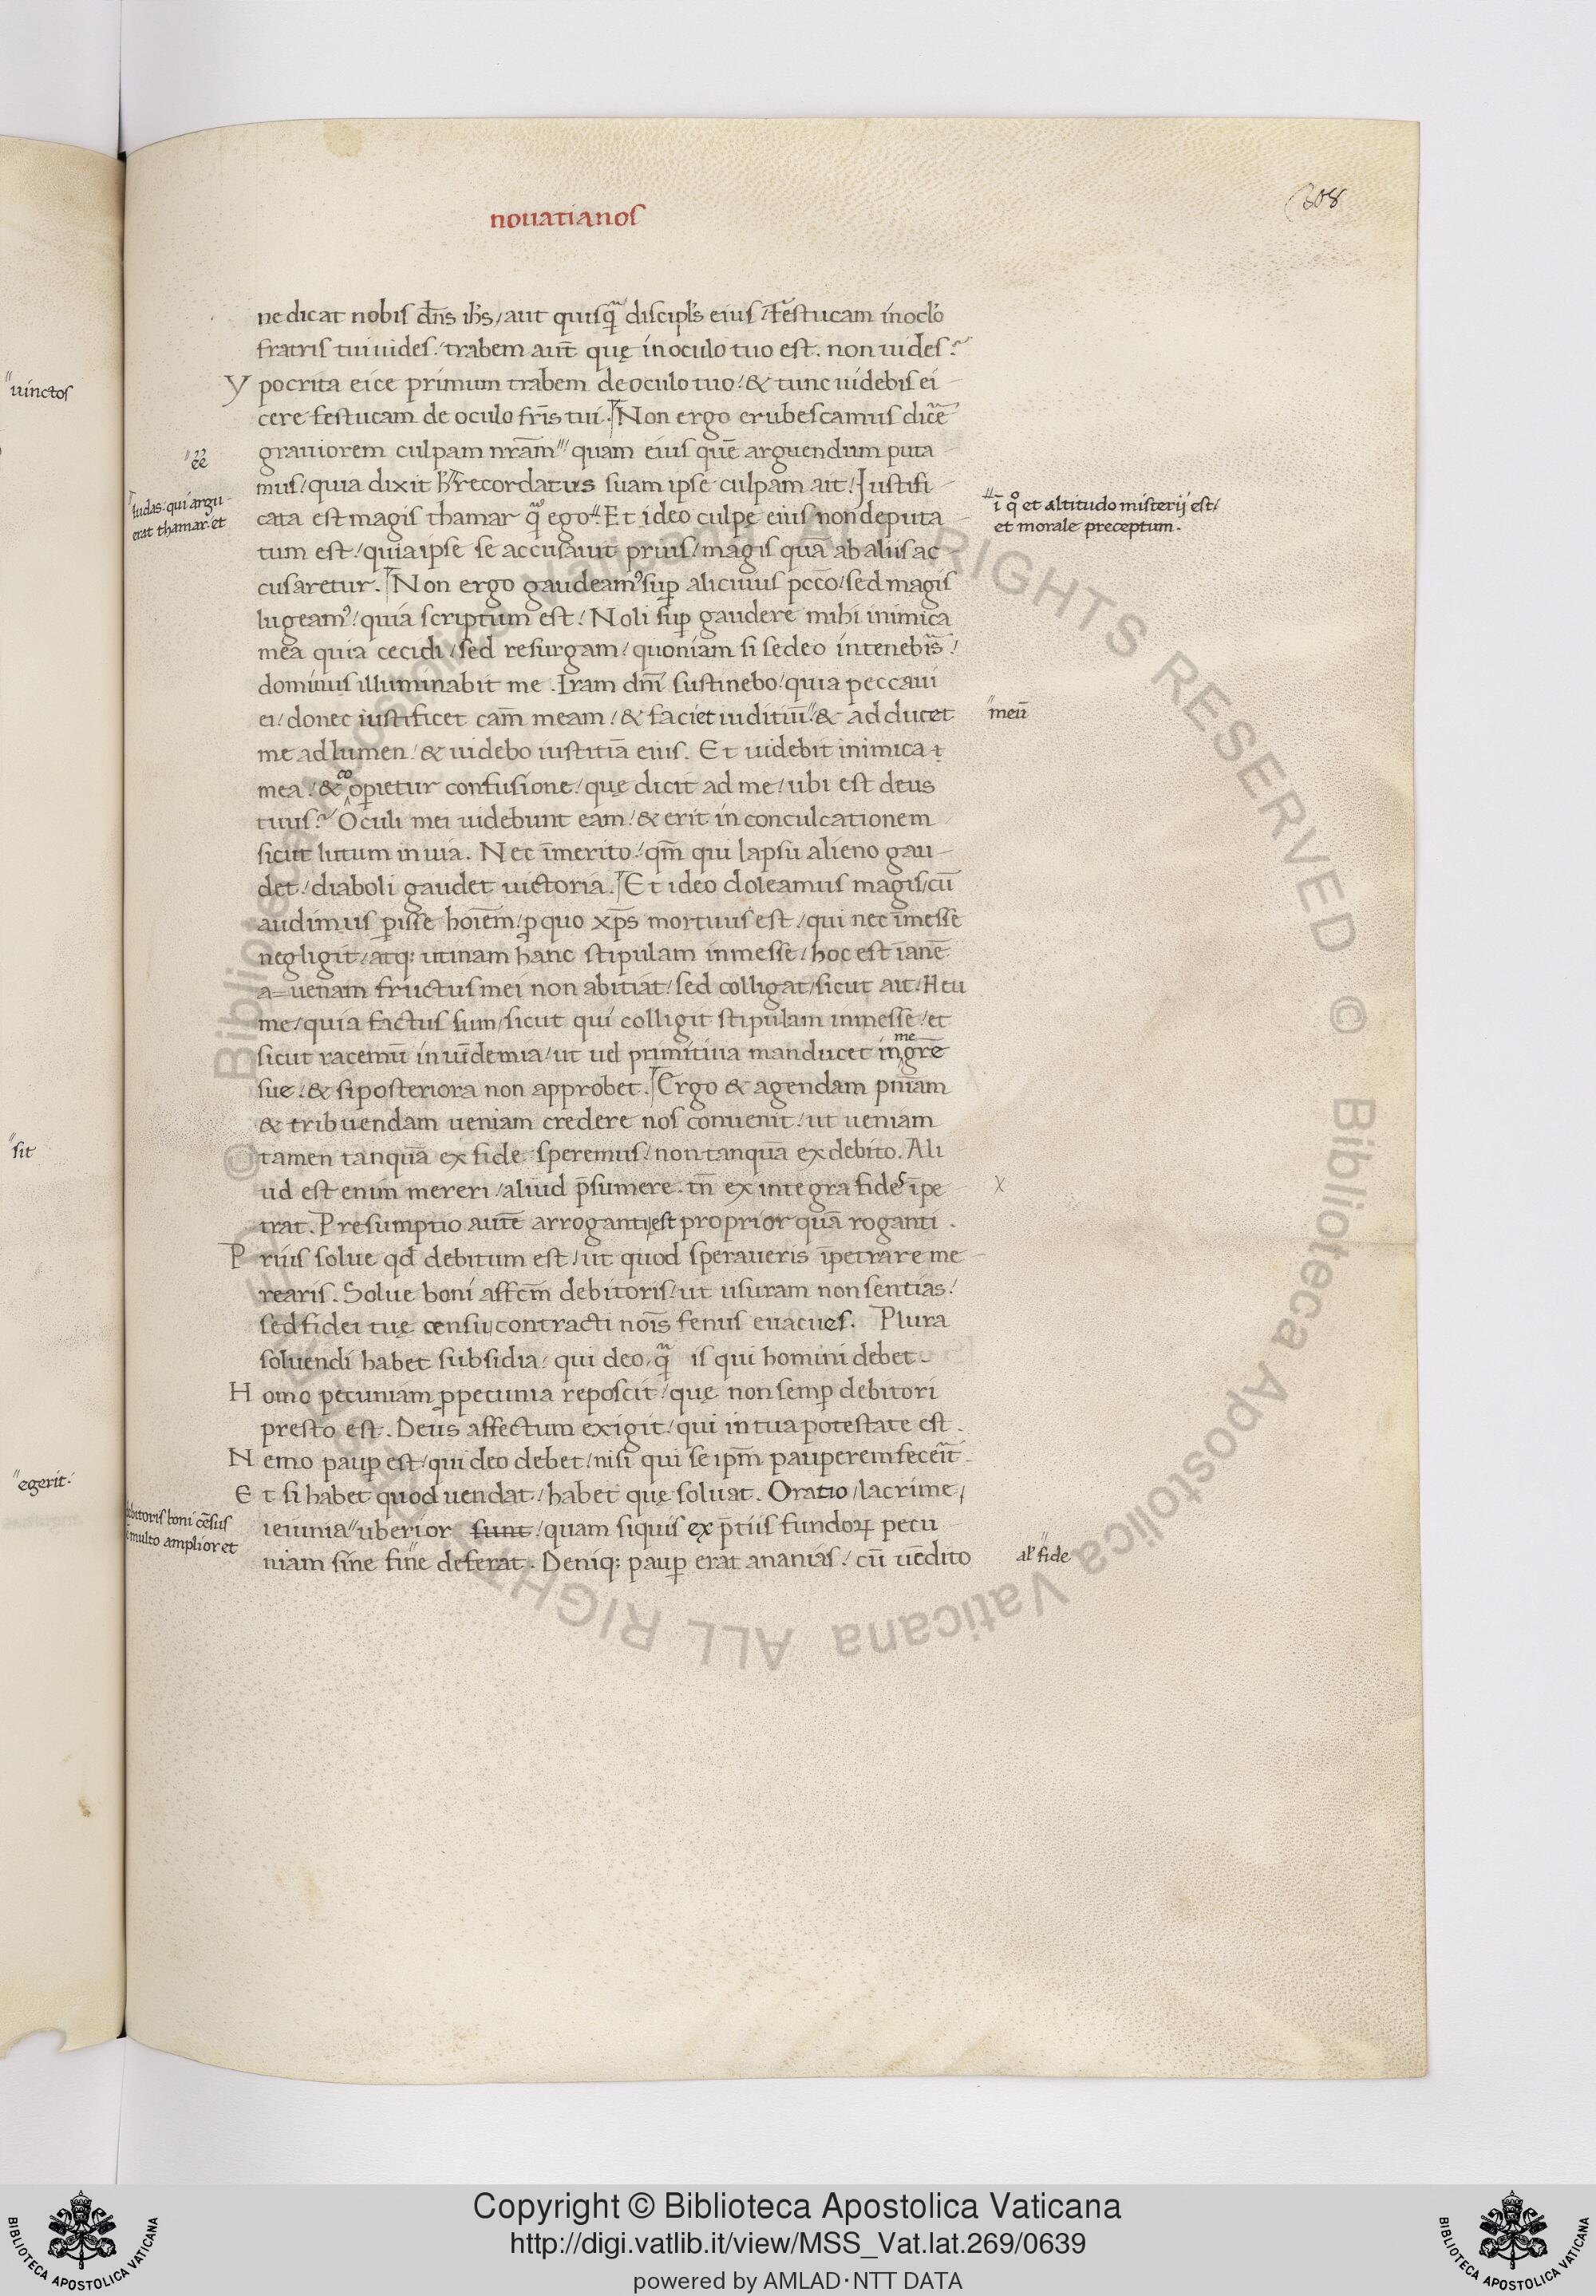 nouatianos
308
ne dicat nobis dn̄s ih̄s / aut quisq̃ discipl's eius / Festucam in oclo
fratris tui uides / trabem aut̄ quę in oculo tuo est . non uides ?
Ypocrita eice primum trabem de oculo tuo / & tunc uidebis ei
cere festucam de oculo fr̄is tui . Non ergo erubescamus dic̄e
grauiorem culpam nr̄am // quam eius quē arguendum puta
mus / quia dixit recordatus suam ipse culpam ait / Justifi
cata est magis thamar q̃ ego . Et ideo culpe eius non deputa
tum est / quia ipse se accusauit prius / magis quā ab aliis ac
cusaretur . Non ergo gaudeam9 sup alicuius pcc̄o / sed magis
lugeam9 / quia scriptum est / Noli sup gaudere mihi inimica
mea quia cecidi / sed resurgam / quoniam si sedeo in tenebr̄is /
dominus illuminabit me . Iram dn̄i sustinebo / quia peccaui
ei / donec iustificet cām meam / & faciet iuditiū // & adducet
me ad lumen / & uidebo iustitiā eius . Et uidebit inimica
mea / & coopietur confusione / quę dicit ad me / ubi est deus
tuus ? Oculi mei uidebunt eam / & erit in conculcationem
sicut lutum in uia . Nec īmerito / qm̄ qui lapsu alieno gau
det / diaboli gaudet uictoria . Et ideo doleamus magis / cū
audimus pisse hoiēm / p quo xp̄s mortuus est / qui nec ī messe
negligit / atq; utinam hanc stipulam in messe / hoc est īanē
a=uenam fructus mei non abitiat / sed colligat / sicut ait / Heu
me / quia factus sum / sicut qui colligit stipulam in messe / et
sicut racemū in uīdemia / ut uel primitiua manducet in me gr̄e
sue / & si posteriora non approbet . Ergo & agendam pniām
& tribuendam ueniam credere nos conuenit / ut ueniam
tamen tanquā ex fide speremus / non tanquā ex debito . Ali
ud est enim mereri / aliud p̄sumere . tn̄ ex integra fides īpe
trat . Presumptio autē arroganti est proprior quā roganti .
Prius solue qd̄ debitum est / ut quod speraueris īpetrare me
rearis . Solue boni affcm̄ debitoris / ut usuram non sentias /
sed fidei tuę censu contracti nōis fenus euacues . Plura
soluendi habet subsidia / qui deo / q̃ is qui homini debet .
Homo pecuniam p pecunia reposcit / quę non semp debitori
presto est . Deus affectum exigit / qui in tua potestate est .
Nemo paup est / qui deo debet / nisi qui se ipm̄ pauperem fecerit .
Et si habet quod uendat / habet quę soluat . Oratio / lacrime /
ieiunia // uberior sunt / quam siquis ex p̄tiis fundorꝝ pecu
niam sine fine deferat . Deniq; paup erat ananias / cū uēdito
uinctos
sit
egerit .
ēē
Iudas . qui argu
erat thamar . et
ī qͦ et altitudo misterij est /
et morale preceptum .
meū
x
debitoris boni cēsus
multo amplior et
al' fide
© Biblioteca Apostolica Vaticana ALL RIGHTS RESERVED © Biblioteca Apostolica Vaticana ALL RIGHTS RESERVED
Copyright © Biblioteca Apostolica Vaticana
http://digi.vatlib.it/view/MSS_Vat.lat.269/0639
powered by AMLAD·NTT DATA
BIBLIOTECA APOSTOLICA VATICANA
BIBLIOTECA APOSTOLICA VATICANA